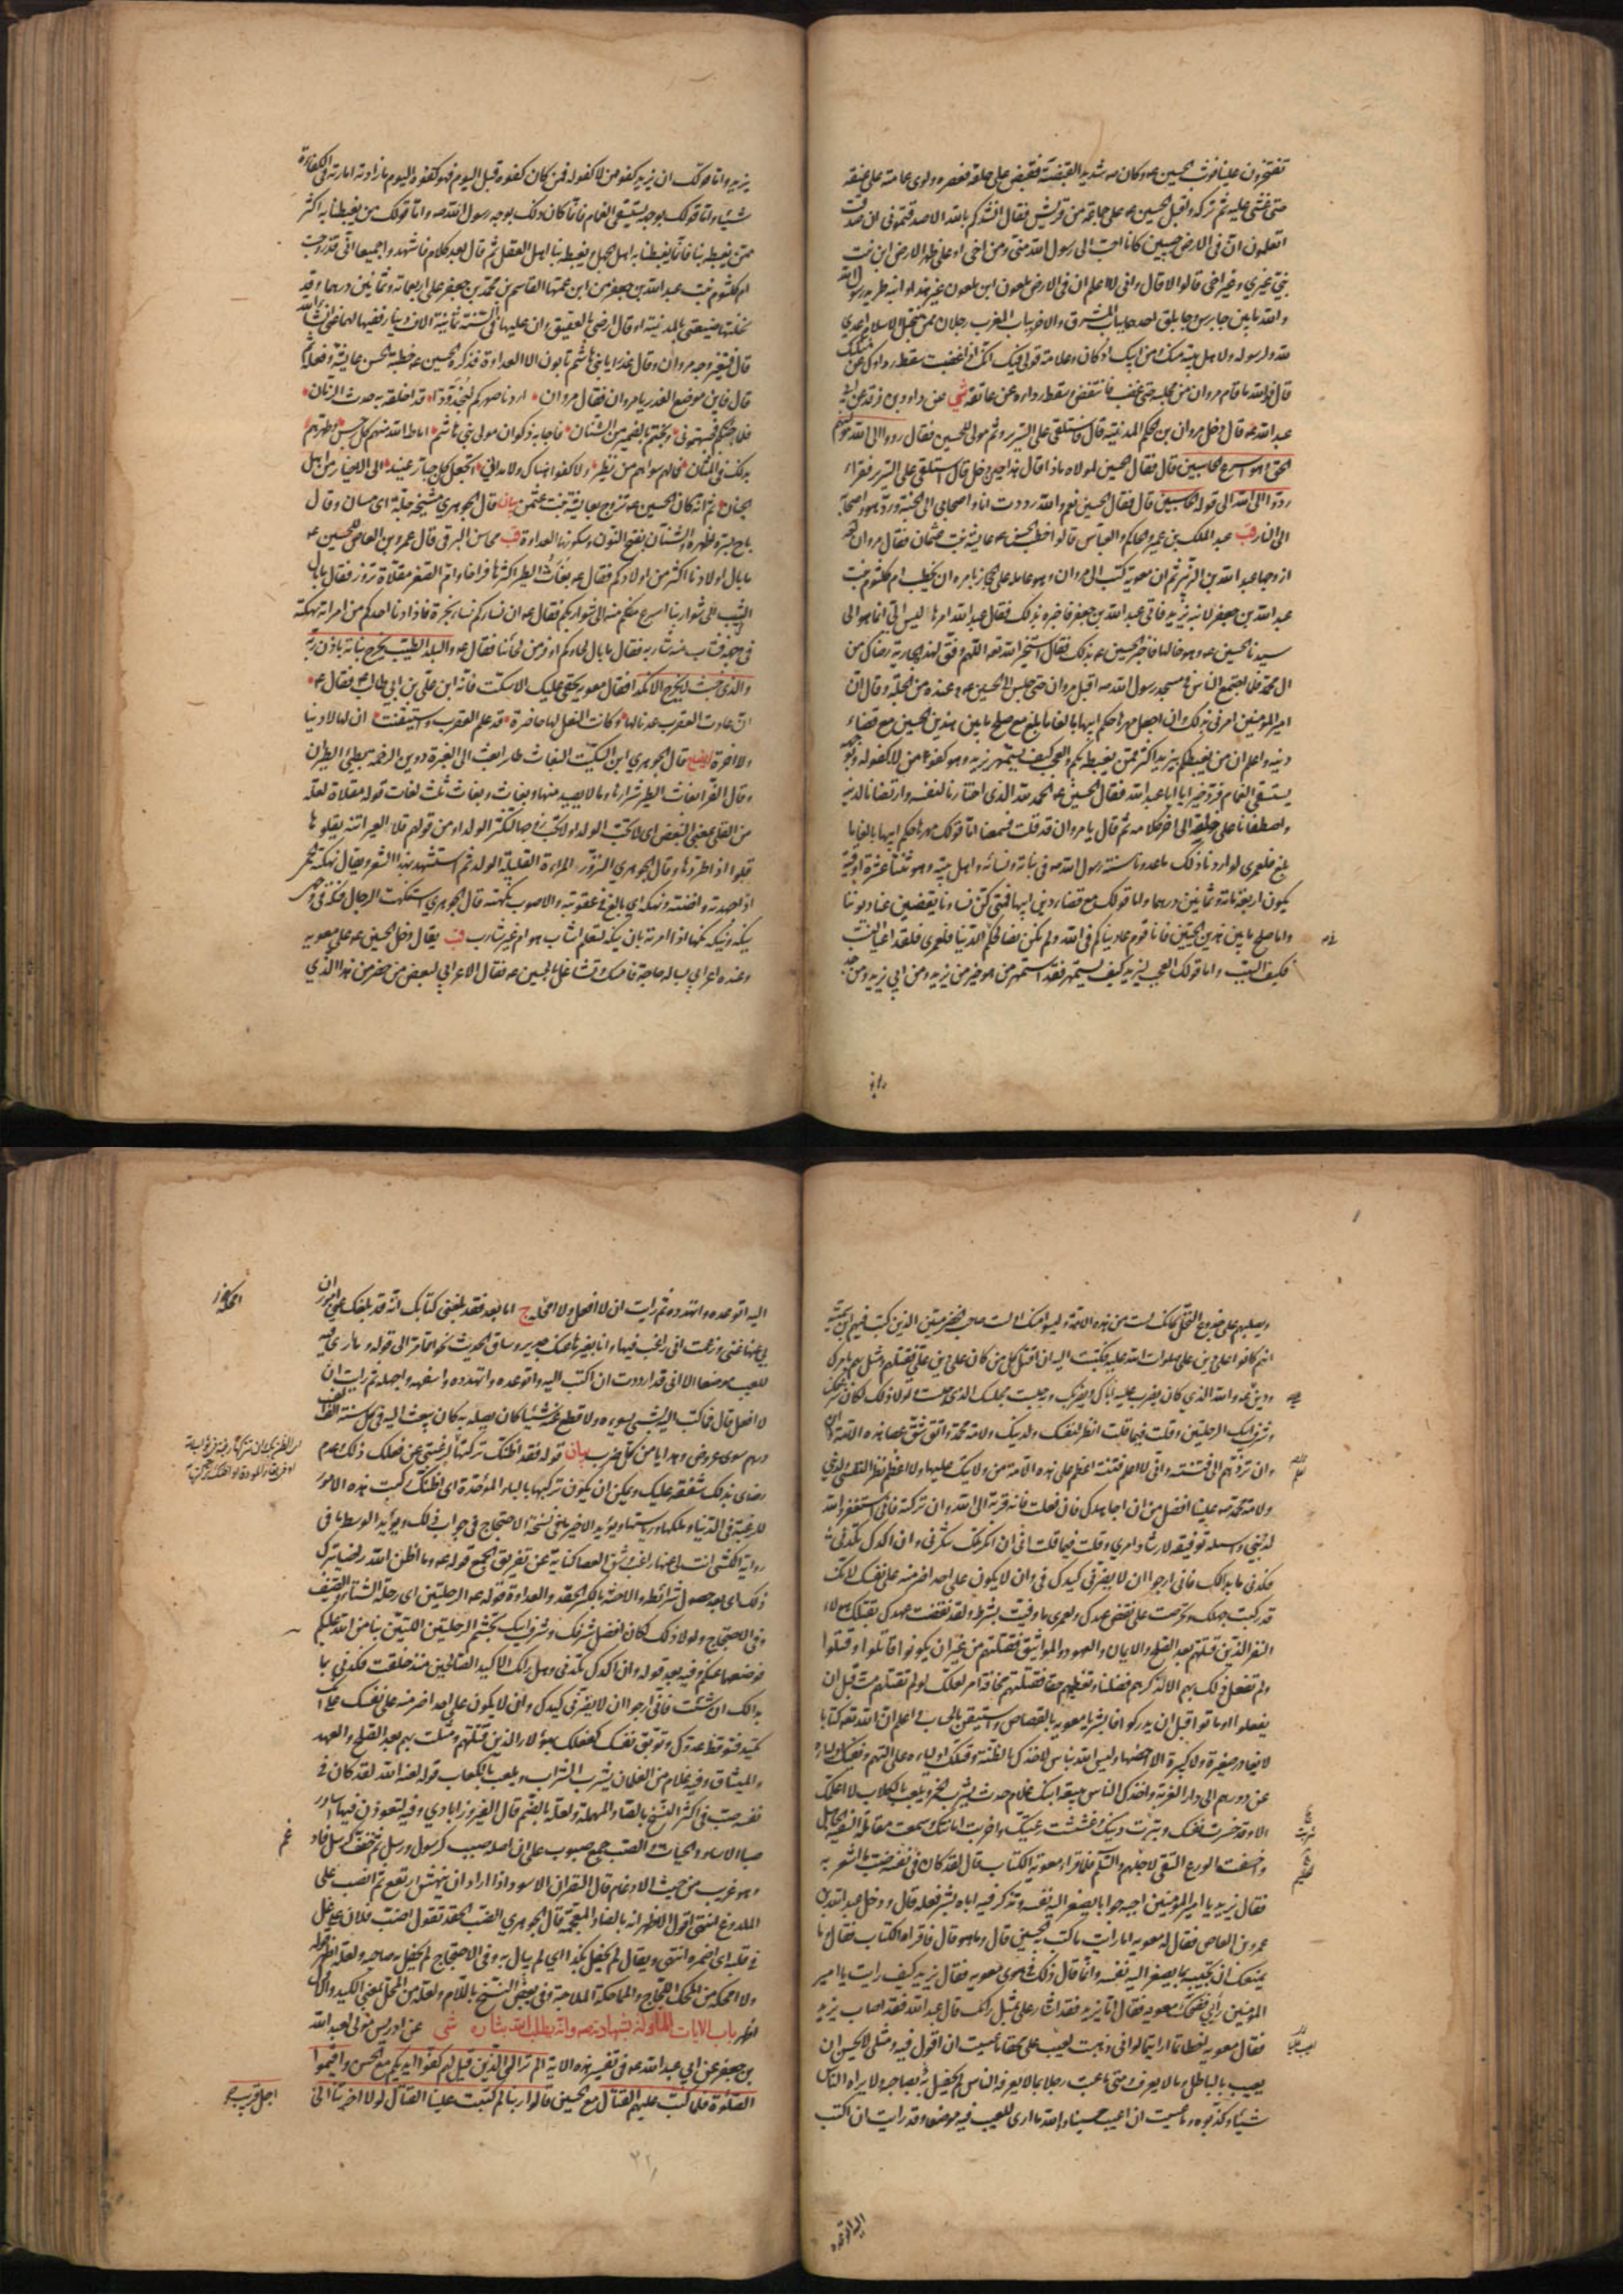 تفتخرون علينا فوثب الحسين ع و كان ع شديد القبضة فقبض على حلقه فعصره و لوى عمامته على عنقه
حتى غشى عليه ثم تركه و اقبل الحسين ع على جماعة من قريش فقال انشدكم بالله الا صدقتموني ان صدقت
اتعلمون ان في الارض حبيبين كانا احب الى رسول الله مني و من اخى او على ظهر الارض ابن بنت
نبي غيري و غير اخى قالوا لا قال و اني لا اعلم ان في الارض ملعون ابن ملعون غير هذا و ابيه طريد رسول الله
و الله ما بين جابرس و جابلق احدهما بباب المشرق و الاخر بباب المغرب رجلان ممن ينتحل الاسلام اعدى
لله و لرسوله و لاهل بيته منك و من ابيك اذ كان و علامة قولي فيك انك اذا غضبت سقط رداؤك عن منكبك
قال فوالله ما قام مروان من مجلسه حتى غضب فانتقض و سقط رداءه عن عاتقه شي عن داود بن فرقد عن ابي
عبد الله ع قال دخل مروان بن الحكم المدينة قال فاستلقى على السرير و ثم مولى للحسين فقال ردوا الى الله موليهم
الحق و هو اسرع الحاسبين قال فقال الحسين لمولاه ماذا قال هذا حين دخل قال استلقى على السرير فقراء
ردوا الى الله الى قوله الحاسبين قال فقال الحسين نعم و الله رددت انا و اصحابي الى الجنة و رد هو و اصحابه
الى النار قب عبد الملك بن عمير و الحاكم و العباس قالوا خطب الحسن ع عايشة بنت عثمان فقال مروان
ازوجها عبد الله بن الزبير ثم ان معوية كتب الى مروان و هو عامله على الحجاز يامره ان يخطب ام كلثوم بنت
عبد الله بن جعفر لابنه يزيد فاتى عبد الله بن جعفر فاخبره بذلك فقال عبد الله ان امرها ليس الي انما هو الى
سيدنا الحسين ع و هو خالها فاخبر الحسين ع بذلك فقال استخير الله تعالى اللهم وفق لهذه الجارية رضاك من
ال محمد فلما اجتمع الناس في مسجد رسول الله ص اقبل مروان حتى جلس الى الحسين ع و عنده من الجلة و قال ان
امير المؤمنين امرني بذلك و ان اجعل مهرها حكم ابيها بالغا ما بلغ مع صلح ما بين هذين الحيين مع قضاء
دينه و اعلم ان من يغبطكم بيزيد اكثر ممن يغبطه بكم و العجب كيف يستمهر يزيد و هو كفو من لا كفو له و بوجهه
يستسقى الغمام فرد خيرا يا ابا عبد الله فقال الحسين ع الحمد لله الذي اختارنا لنفسه و ارتضانا لدينه
و اصطفانا على خلقه الى اخر كلامه ثم قال يا مروان قد قلت فسمعنا اما قولك مهرها حكم ابيها بالغا ما
بلغ فلعمري لو اردنا ذلك ما عدونا سنة رسول الله ص في بناته و نسائه و اهل بيته و هو ثنتا عشرة اوقية
يكون اربعمائة و ثمانين درهما و اما قولك مع قضاء دين ابيها فمتى كن نساؤنا يقضين عنا ديوننا
و اما صلح ما بين هذين الحيين فانا قوم عاديناكم في الله و لم نكن نصالحكم للدنيا فلعمري فلقد اعيا النسب
فكيف السبب و اما قولك العجب ليزيد كيف يستمهر فقد استمهر من هو خير من يزيد و من ابي يزيد و من جد
يزيد و اما قولك ان يزيد كفو من لا كفو له فمن كان كفوه قبل اليوم فهو كفوه اليوم ما زادته امارته في الكفاءة
شيئا و اما قولك بوجهه يستسقى الغمام فانما كان ذلك بوجه رسول الله ص و اما قولك من يغبطنا به اكثر
ممن يغبطه بنا فانما يغبطنا به اهل الجهل و يغبطه بنا اهل العقل ثم قال بعد كلام فاشهدوا جميعا اني قد زوجت
ام كلثوم بنت عبد الله بن جعفر من ابن عمها القاسم بن محمد بن جعفر على اربعمائة و ثمانين درهما و قد
نحلتها ضيعتي بالمدينة او قال ارضي بالعقيق و ان غلتها في السنة ثمانية الاف دينار ففيها لهما غنى ان شاء الله
قال فتغير وجه مروان و قال غدرا يا بني هاشم تابون الا العداوة فذكره الحسين ع خطبة الحسن عايشة و فعله
قال فاين موضع الغدر يا مروان فقال مروان اردنا صهركم لنجد ودا قد اخلقه به حدث الزمان
فلما جئتكم فجبهتموني و بحتم بالضمير من الشنان فاجابه ذكوان مولى بني هاشم اماط الله منهم كل رجس و طهرهم
بذلك في المثاني فما لهم سواهم من نظير و لا كفو هناك و لا مداني اتجعل كل جبار عنيد الى الاخيار من اهل
الجنان ثم انه كان الحسين ع تزوج بعايشة بنت عثمن بيان قال الجوهري مشيخة جلة اى مسان و قال
باح بسره اظهره و الشنان بفتح النون و سكونها العداوة قب محاسن البرقى قال عمرو بن العاص للحسين ع
ما بال اولادنا اكثر من اولادكم فقال ع بغاث الطير اكثرها فراخا و ام الصقر مقلاة نزور فقال ما بال
الشيب الى شواربنا اسرع منكم منه الى شواربكم فقال ع ان نساءكم نساء بخرة فاذا دنا احدكم من امراته نهكته
في وجهه فشاب منه شاربه فقال ما بال لحاءكم اوفر من لحائنا فقال ع و البلد الطيب يخرج نباته باذن ربه
و الذي خبث لا يخرج الا نكدا فقال معوية بحقي عليك الا سكت فانه ابن علي بن ابي طالب ع فقال ع
ان عادت العقرب عدنا لها و كانت النعل لها حاضرة قد علم العقرب و استيقنت ان لا لها دنيا
و لا اخرة ايضاح قال الجوهري ابن السكيت البغاث طائر ابغث الى الغبرة دوين الرخمة بطيئ الطيران
و قال الفراء بغاث الطير شرارها و ما لا يصيد منها و بغاث و بغاث ثلث لغات قوله مقلاة لعله
من القلى بمعنى البغض اى لا تحب الولد او لا تحب زوجها لتكثر الولد او من قولهم قلا العير اتنه يقلوها
قلوا اذا طردها و قال الجوهري النزور المراءة القليلة الولد ثم استشهد بهذا الشعر و يقال نهكته الحمى
اذا جهدته و اضنته و نهكه اي بالغ في عقوبته و الاصوب نكهته قال الجوهري استنكهت الرجل فنكه في وجهي
ينكه و ينكه نكها اذا امرته بان ينكه لتعلم اشارب هو ام غير شارب قب يقال دخل الحسين ع على معويه
و عنده اعرابي يساله حاجة فامسك و تشاغل بالحسين ع فقال الاعرابي لبعض من حضر من هذا الذي
و يصلبهم على جذوع النخل كانك لست من هذه الامة و ليسوا منك اولست صاحب الحضرميين الذين كتب فيهم ابن سمية
انهم كانوا على دين علي صلوات الله عليه فكتبت اليه ان اقتل كل من كان على دين علي فقتلهم و مثل بهم بامرك
و دين علي ع و الله الذي كان يضرب عليه اباك و يضربك و به جلست مجلسك الذي جلست و لولا ذلك لكان شرفك
و شرف ابيك الرحلتين و قلت فيما قلت انظر لنفسك و لدينك و لامة محمد و اتق شق عصا هذه الامة
و ان تردهم الى فتنة و اني لا اعلم فتنة اعظم على هذه الامة من ولايتك عليها و لا اعظم نظرا لنفسي و لديني
و لامة محمد ص علينا افضل من ان اجاهدك فان فعلت فانه قربة الى الله و ان تركته فاني استغفر الله
لذنبي و اسئله توفيقه لارشاد امري و قلت فيما قلت انني ان انكرتك تنكرني و ان اكدك تكدني
فكدني ما بدا لك فاني ارجو ان لا يضرني كيدك في و ان لا يكون على احد اضر منه على نفسك لانك
قد ركبت جهلك و تحرصت على نقض عهدك و لعمري ما وفيت بشرط و لقد نقضت عهدك بقتلك هؤلاء
النفر الذين قتلتهم بعد الصلح و الايمان و العهود و المواثيق فقتلتهم من غير ان يكونوا قاتلوا و قتلوا
و لم تفعل ذلك بهم الا لذكرهم فضلنا و تعظيمهم حقنا فقتلتهم مخافة امر لعلك لو لم تقتلهم مت قبل ان
يفعلوا او ماتوا قبل ان يدركوا فابشر يا معويه بالقصاص و استيقن بالحساب و اعلم ان لله تعه كتابا
لا يغادر صغيرة و لا كبيرة الا احصيها و ليس الله بناس لاخذك بالظنة و قتلك اولياءه على التهم و نفيك اولياءه
عن دورهم الى دار الغربة و اخذك الناس ببيعة ابنك غلام حدث يشرب الخمر و يلعب بالكلاب لا اعلمك
الا و قد خسرت نفسك و تبرت دينك و غششت رعيتك و اخربت امانتك و سمعت مقالة السفيه الجاهل
و اخفت الورع التقي لاجلهم و السلم فلما قراء معوية الكتاب قال لقد كان في نفسه ضب ما اشعر به
فقال يزيد يا امير المؤمنين اجبه جوابا يصغر اليه نفسه و تذكر فيه اباه بشر فعله قال و دخل عبد الله بن
عمرو بن العاص فقال له معويه اما رايت ما كتب به الحسين قال و ما هو قال فاقراه الكتاب فقال و ما
يمنعك ان تجيبه بما يصغر اليه نفسه و انما قال ذلك في هوى معويه فقال يزيد كيف رايت يا امير
المؤمنين رأيي فضحك معويه فقال اما يزيد فقد اشار علي بمثل رايك قال عبد الله فقد اصاب يزيد
فقال معويه اخطاتما ارايتما لو اني ذهبت لعيب علي محقا ما عسيت ان اقول فيه و مثلي لا يحسن ان
يعيب بالباطل و ما لا يعرف و متى ما عبت رجلا بما لا يعرفه الناس لم يحفل به صاحبه و لا يراه الناس
شيئا و كذبوه و ما عسيت ان اعيب حسينا و الله ما ارى للعيب فيه موضعا و قد رايت ان اكتب
اليه اتوعده و اتهدده ثم رايت ان لا افعل و لا امحله ج اما بعد فقد بلغني كتابك انه قد بلغك عني امور ان
بي عنها غنى و زعمت اني راغب فيها و انا بغيرها عنك جدير و ساق الحديث نحوا مما مر الى قوله و ما ارى فيه
للعيب موضعا الا اني قد اردت ان اكتب اليه و اتوعده و اتهدده و اسفهه و اجهله ثم رايت ان
لا افعل قال فما كتب اليه بشيء يسوءه و لا قطع عنه شيئا كان يصله به كان يبعث اليه في كل سنة الف الف
درهم سوى عروض و هدايا من كل ضرب بيان قوله فقد اظنك تركتها رغبة عن فعلك ذلك و عدم
رضاى بذلك شفقة عليك و يمكن ان يكون تركبها بالباء الموحدة اى اظنك ركبت هذه الامور
للرغبة في الدنيا و ملكها و رياستها و يؤيد الاخير ما في نسخة الاحتجاج في جواب ذلك و يؤيد الوسط ما في
رواية الكشي انت لي عنها راغب و شق العصا كناية عن تفريق الجمع قوله ع و ما اظن الله راضيا بترك
ذلك اى بعد حصول شرائطه و الاحنة بالكسر الحقد و العداوة قوله ع الرحلتين اى رحلة الشتاء و الصيف
و في الاحتجاج و لولا ذلك لكان افضل شرفك و شرف ابيك تجشم الرحلتين اللتين بنا من الله عليكم
فوضعهما عنكم و فيه بعد قوله و ان اكدك تكدني و هل رايك الا كيد الصالحين منذ خلقت فكدني ما
بدا لك ان شئت فاني ارجو ان لا يضرني كيدك و ان لا يكون على احد اضر منه على نفسك على انك
تكيد فتوقظ عدوك و توبق نفسك كفعلك بهؤلاء الذين قتلتهم و مثلت بهم بعد الصلح و العهد
و الميثاق و فيه غلام من الغلمان يشرب الشراب و يلعب بالكعاب قوله لعنه الله لقد كان في
نفسه صب في اكثر النسخ بالصاد المهملة و لعله بالضم قال الفيروزابادي و فيه لتعودن فيها اساود
صبا الاساود الحيات و الصب جمع صبوب على ان اصله صبب كرسول و رسل ثم خفف كرسل فادغم
و هو غريب من حيث الادغام قال النضر ان الاسود اذا اراد ان ينهش ارتفع ثم انصب على
الملدوغ انتهى اقول الاظهر انه بالضاد المعجمة قال الجوهري الضب الحقد تقول اضب فلان على غل
في قلبه اى اضمره انتهى و يقال لم يحفل بكذا اى لم يبال به و في الاحتجاج لم يحفل به صاحبه و لعله اظهر
و لا امحكه من المحك اللجاج و المماحكة الملاجة و في بعض النسخ باللام و لعله من المحل بمعنى الكيد و الاول
اظهر باب الايات الماولة لشهادته ص و انه يطلب الله بثاره شى عن ادريس مولى لعبد الله
بن جعفر عن ابي عبد الله ع في تفسير هذه الاية الم تر الى الذين قيل لهم كفوا ايديكم مع الحسن و اقيموا
الصلوة فلما كتب عليهم القتال مع الحسين قالوا ربنا لم كتبت علينا القتال لولا اخرتنا الى
اجل قريب